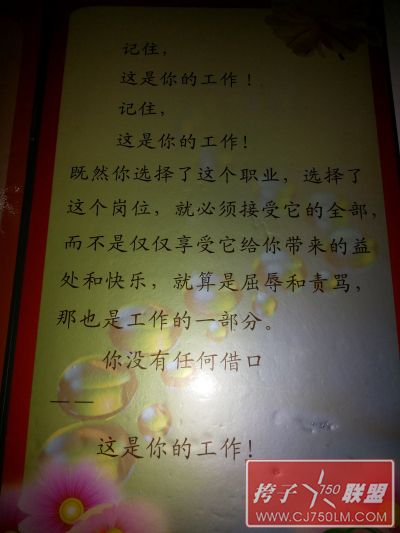 记住，
这是你的工作！
记住，
这是你的工作！
既然你选择了这个职业，选择了
这个岗位，就必须接受它的全部，
而不是仅仅享受它给你带来的益
处和快乐，就算是屈辱和责骂，
那也是工作的一部分。
你没有任何借口
——
这是你的工作！
挎子 750 联盟
WWW.CJ750LM.COM